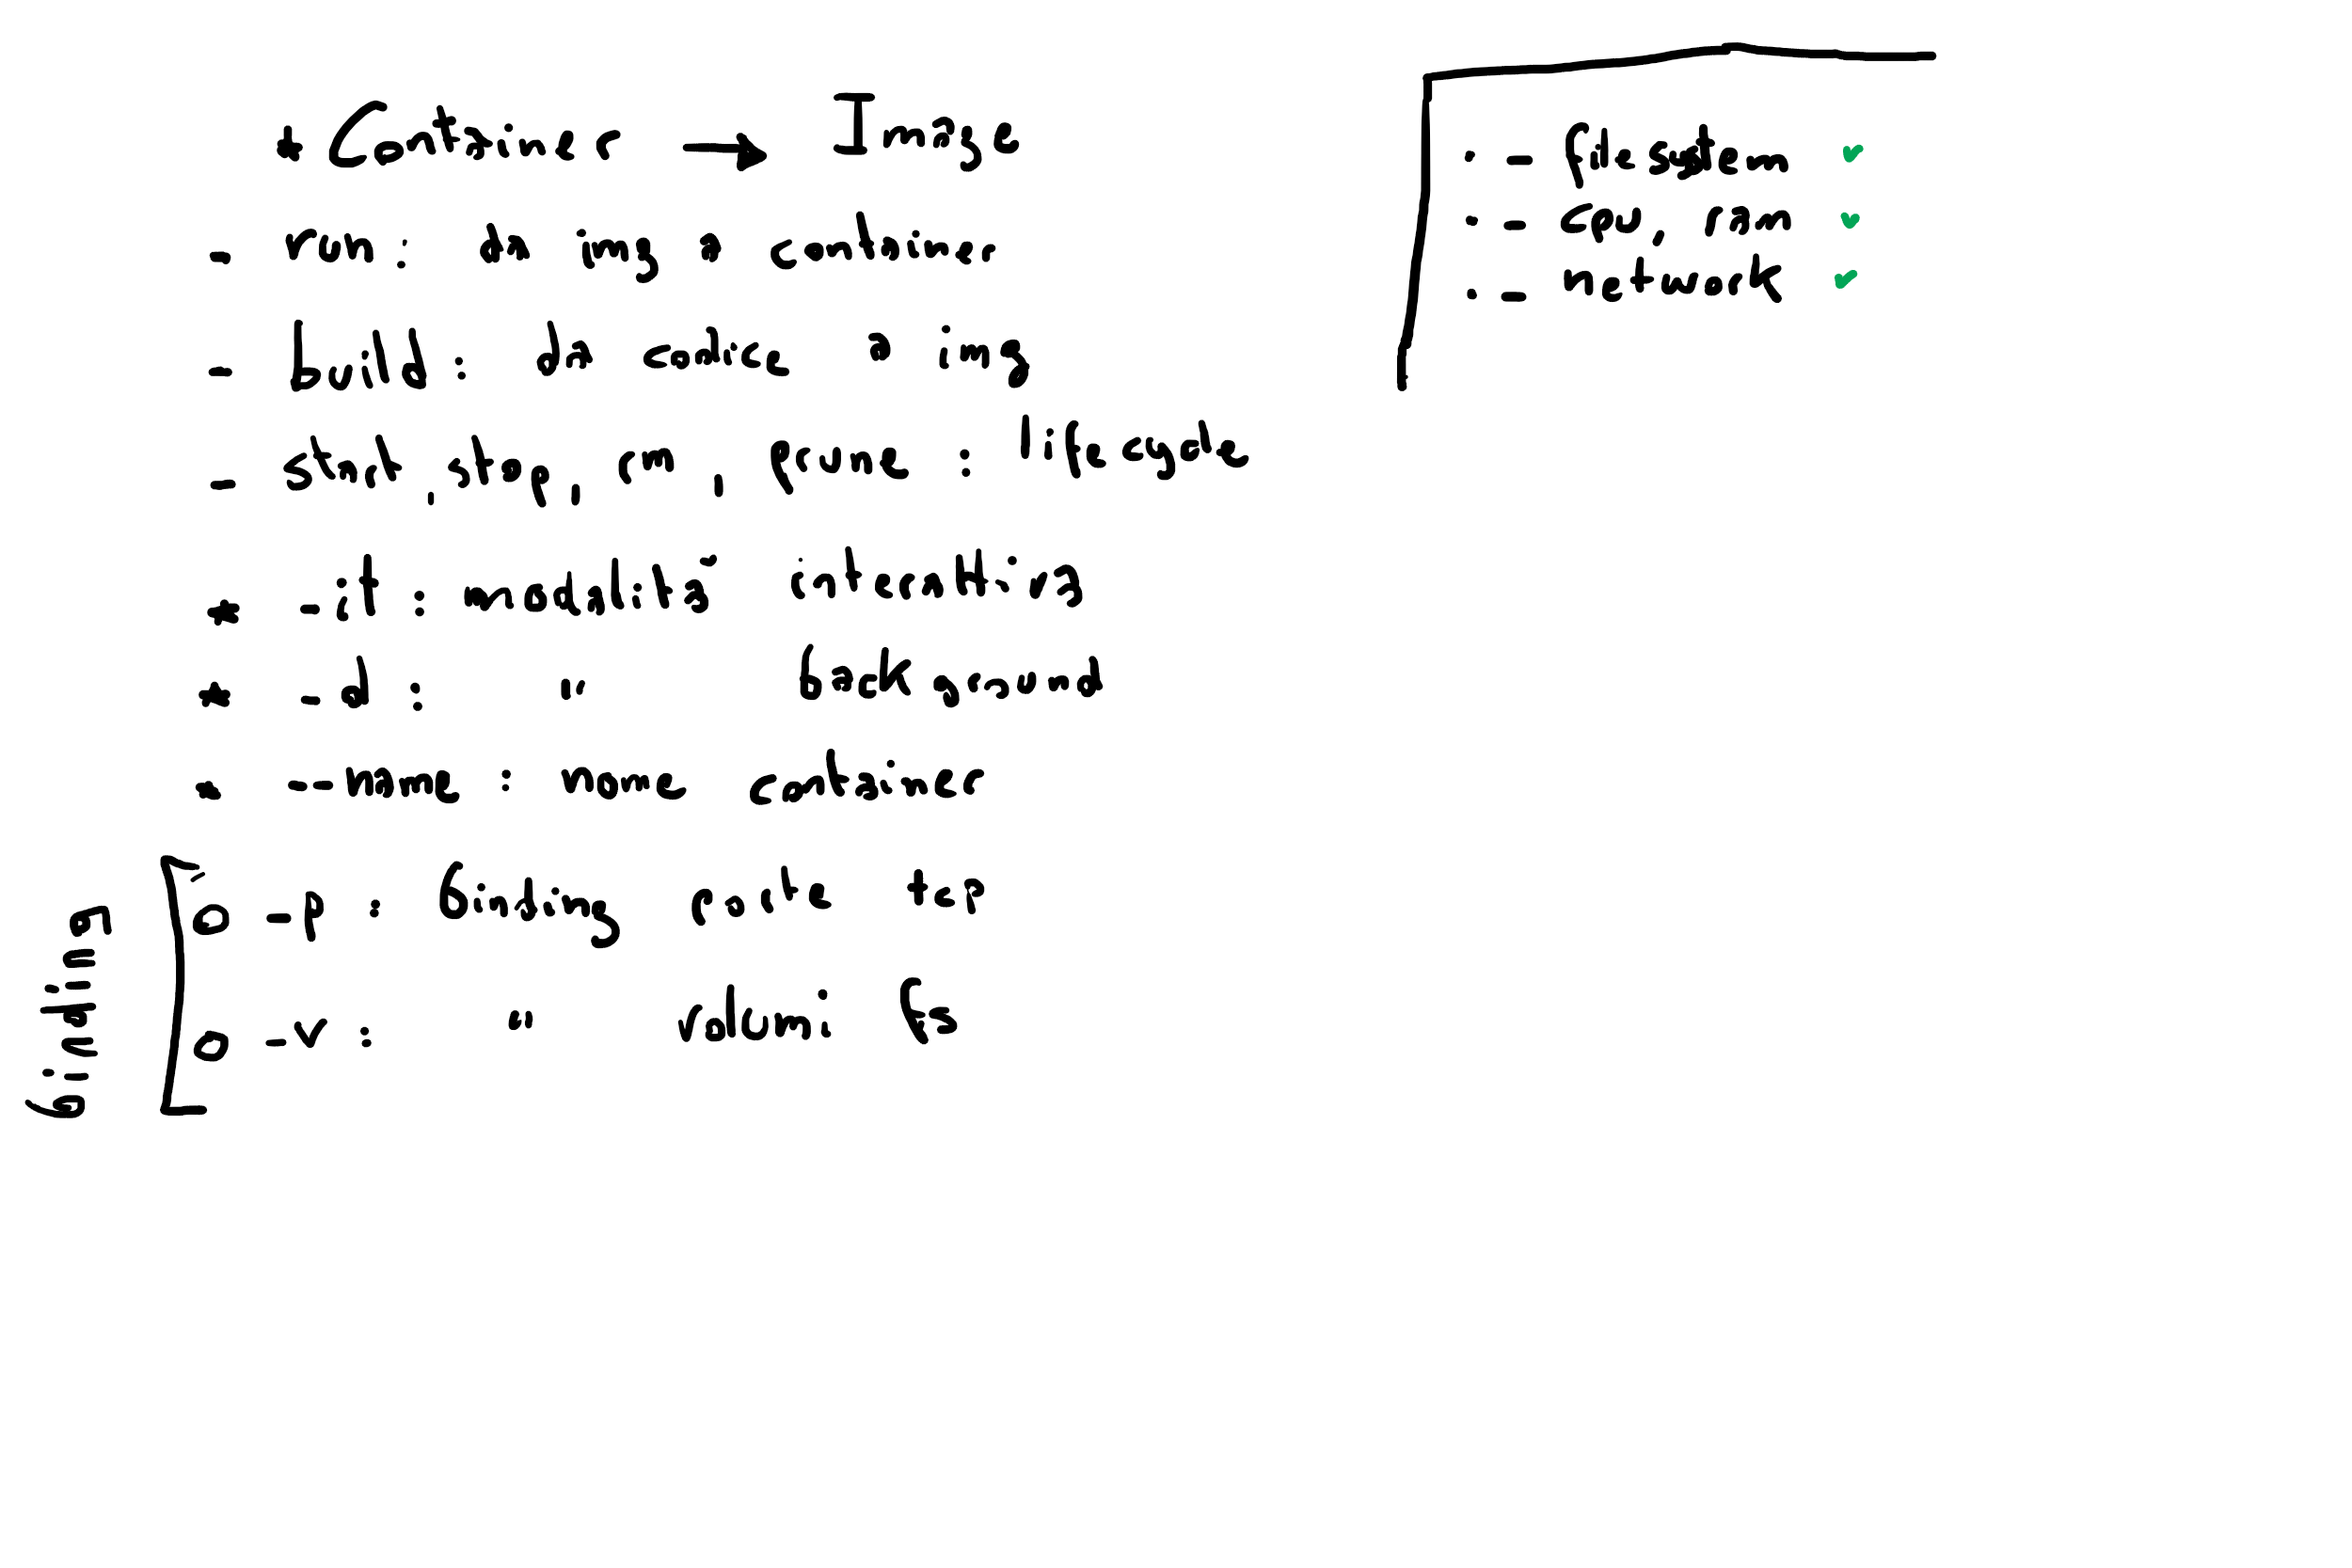 * Container → Image
- run: da img a container
- build: da codice a img
- start, stop, rm, prune: lifecycle
* -it: modalità interattiva
* -d: " background
* --name: nome container
binding
o -p: binding porte tcp
o -v: " volumi fs
- filesystem ✓
- cpu, ram ✓
- network ✓